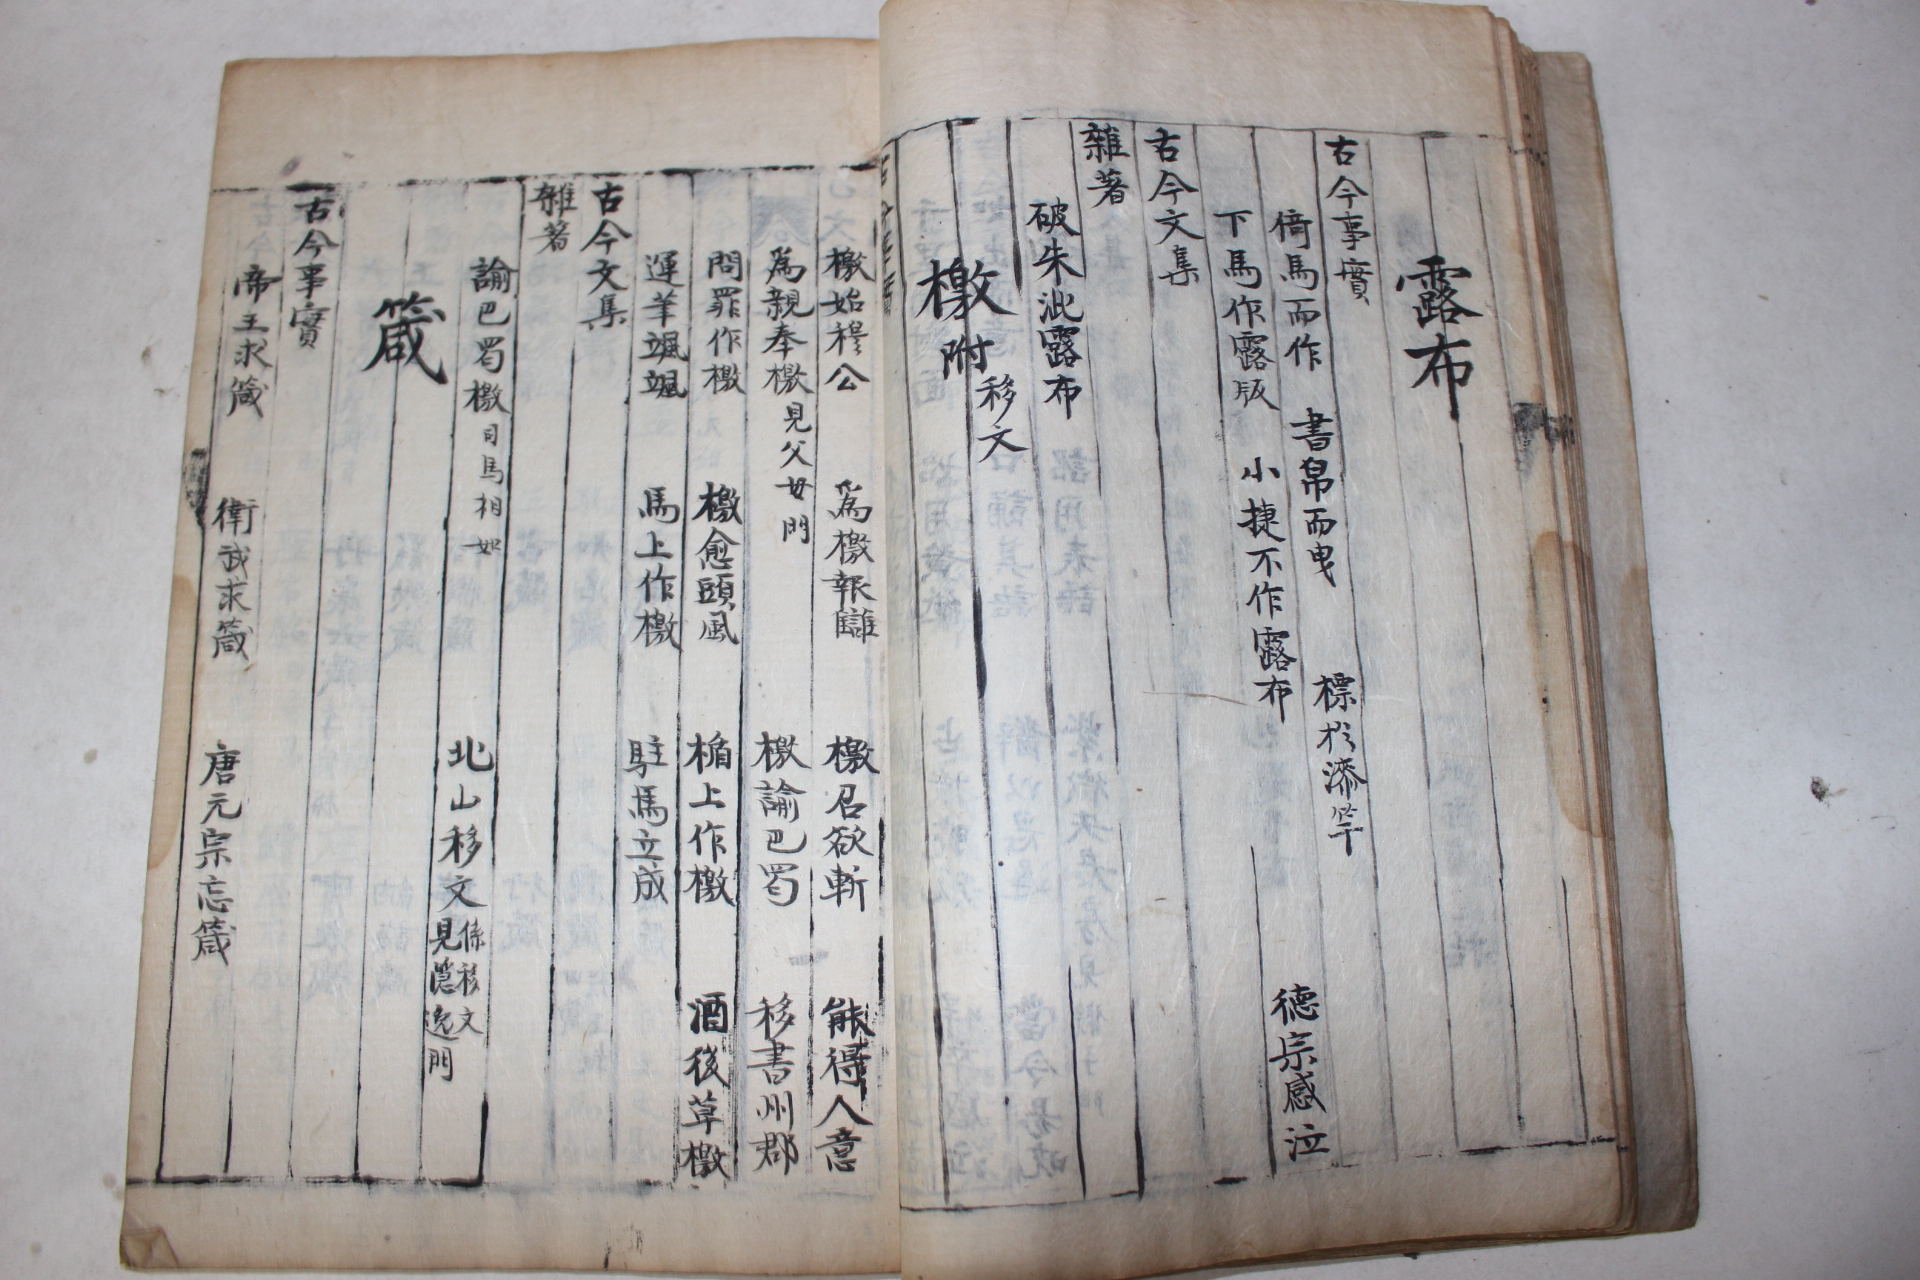 露布
古今事實
倚馬而作　書帛而曳　標於漆竿
下馬作露版　小捷不作露布　德宗感泣
古今文集
雜著
破朱泚露布
檄附移文
檄始穆公　爲檄報讎　檄召欲斬　能得人意
爲親奉檄見父母門　檄諭巴蜀　移書州郡
問罪作檄　檄愈頭風　楯上作檄　酒後草檄
運筆颯颯　馬上作檄　駐馬立成
古今文集
雜著
諭巴蜀檄司馬相如　北山移文係移文見隱逸門
箴
古今事實
帝王求箴　衛武求箴　唐元宗忘箴